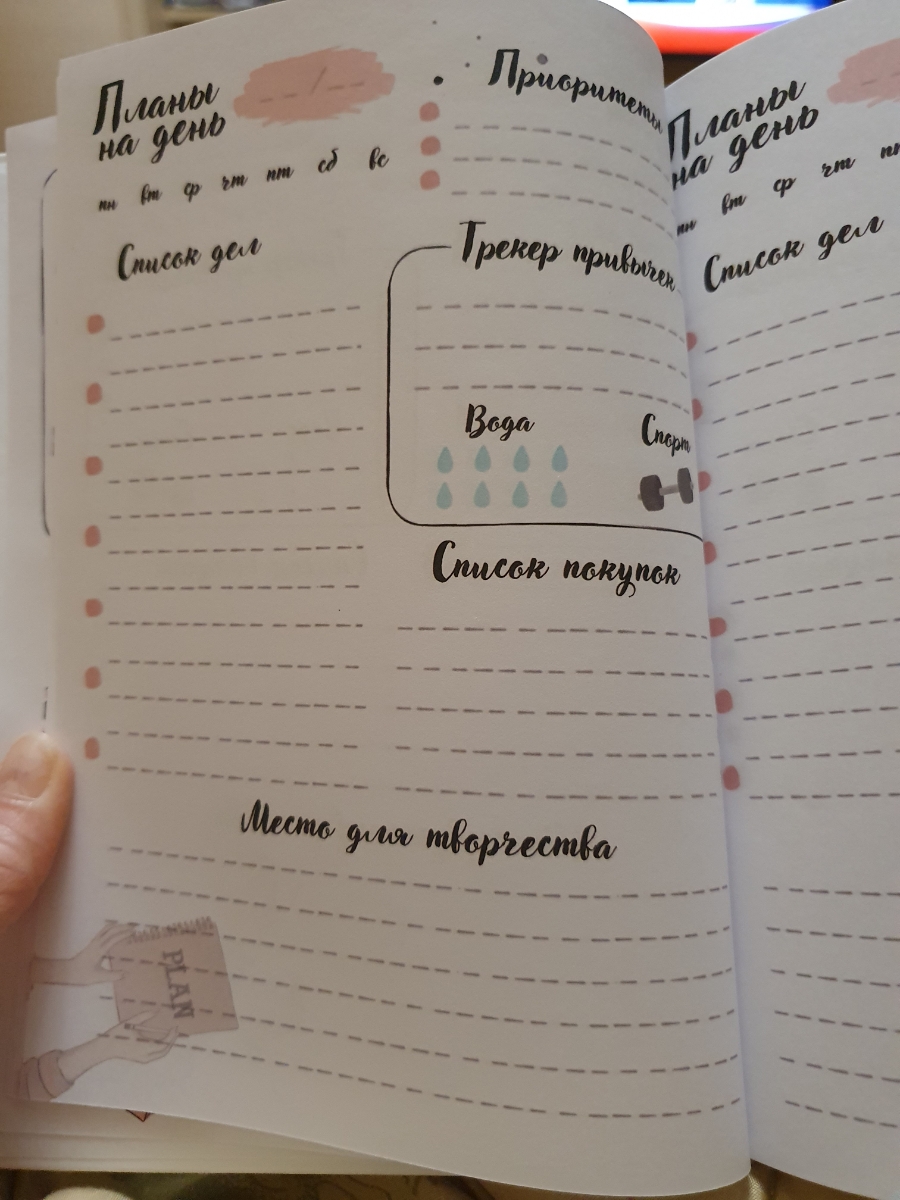 Планы
на день
пн вт ср чт пт сб вс
Список дел
Приоритеты
Трекер привычек
Вода
Спорт
Список покупок
Место для творчества
PLAN
Планы
на день
пн вт ср чт пт
Список дел